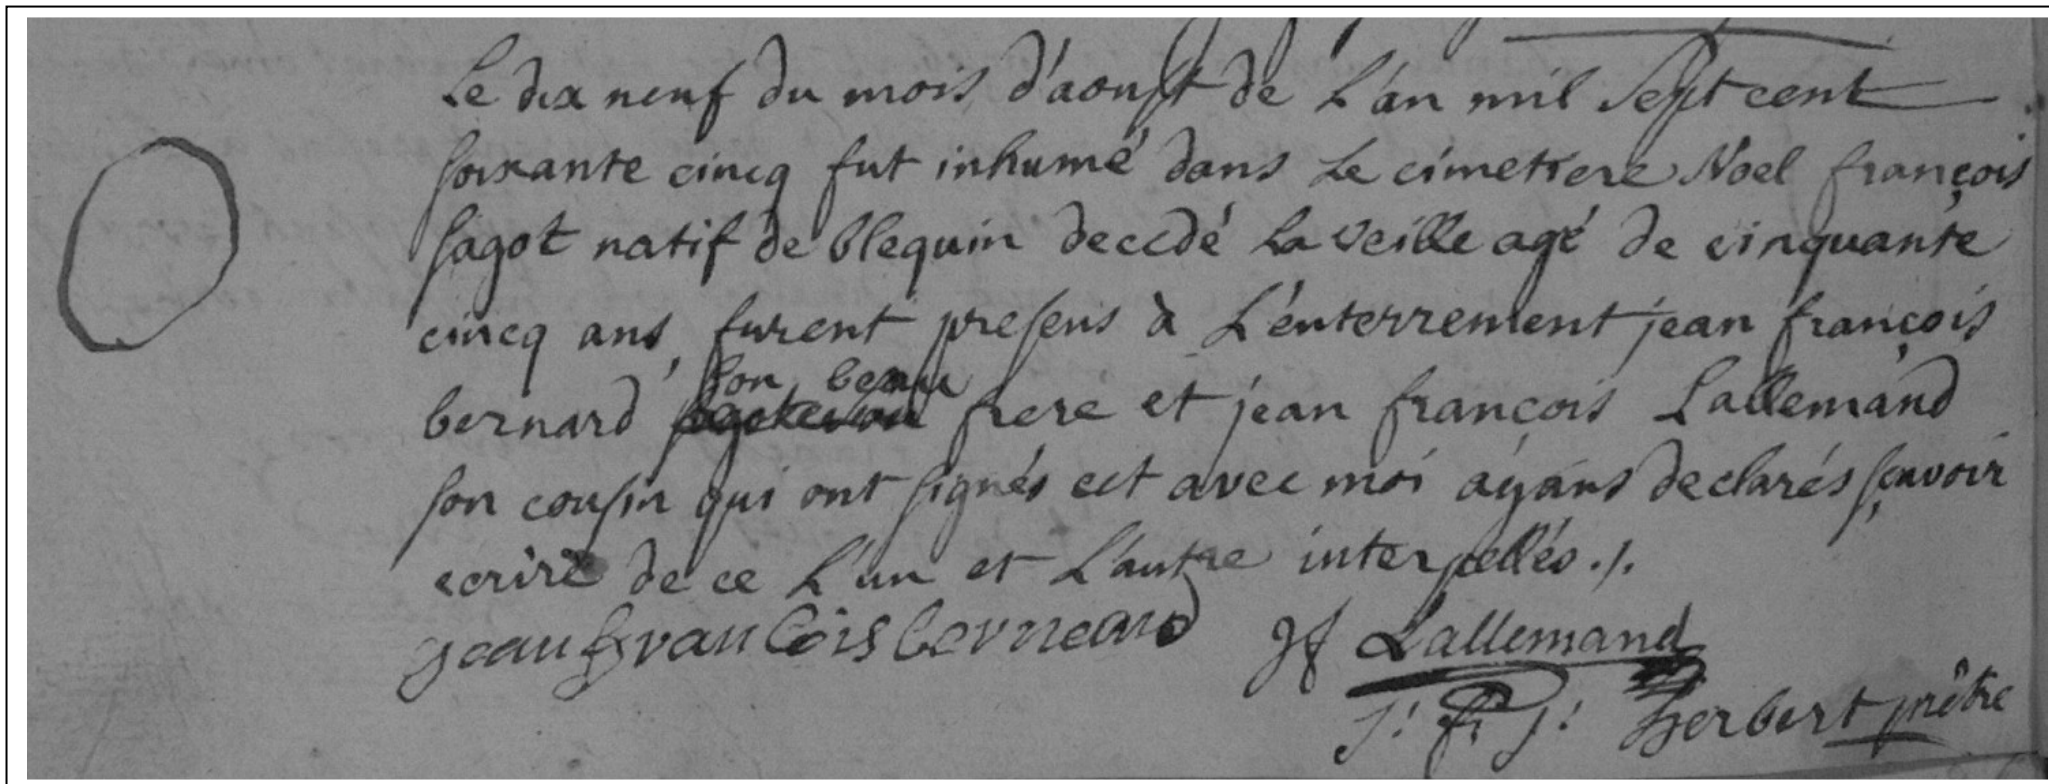 Le dix neuf du mois d'aoust de L'an mil Sept cent
soixante cincq fut inhumé dans Le cimetiere Noel françois
sagot natif de blequin decedé La veille agé de cinquante
cincq ans, furent presens à L'enterrement jean françois
bernard son beau frere et jean françois Lallemand
son cousin qui ont signés cet avec moi ayans declarés sçavoir
ecrire de ce L'un et L'autre interpellés ./.
jean francois berneard jf Lallemand
J: fr: J: herbert prêtre